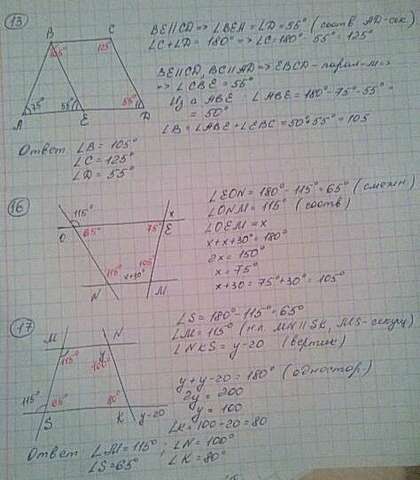 13
B C
105° 125°
75° 55° 55°
A E D
BE||CD => ∠BEA = ∠D = 55° (соотв AD-сек)
∠C+∠D = 180° => ∠C = 180° - 55° = 125°
BE||CD, BC||AD => EBCD - парал-м =>
=> ∠CBE = 55°
Из △ ABE : ∠ABE = 180° - 75° - 55° =
= 50°
∠B = ∠ABE + ∠EBC = 50° + 55° = 105
Ответ ∠B = 105°
∠C = 125°
∠D = 55°
16
115° x
O 65° 75° E
115° 105
x+30°
N M
∠EON = 180° - 115° = 65° (смежн)
∠ONM = 115° (соотв)
∠OEM = x
x + x + 30° = 180°
2x = 150°
x = 75°
x + 30 = 75° + 30° = 105°
17
M N
115° y
100°
115° 65° 80°
S K y-20
∠S = 180° - 115° = 65°
∠M = 115° (н.л. MN||SK, MS-секущ)
∠NKS = y-20 (вертик)
y + y - 20 = 180° (одностор)
2y = 200
y = 100
∠K = 100 - 20 = 80
Ответ ∠M = 115° ; ∠N = 100°
∠S = 65° ∠K = 80°